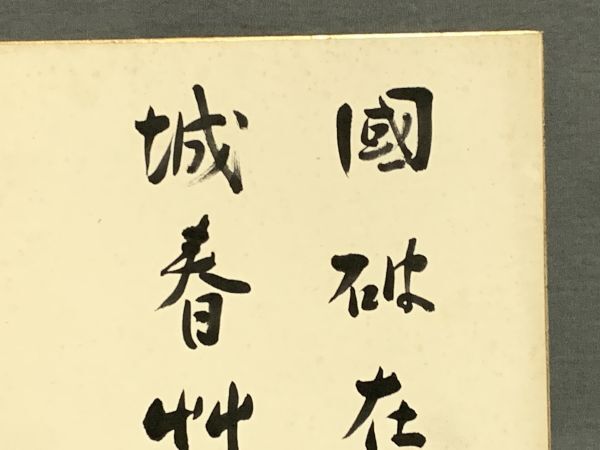 國破在
城春艸